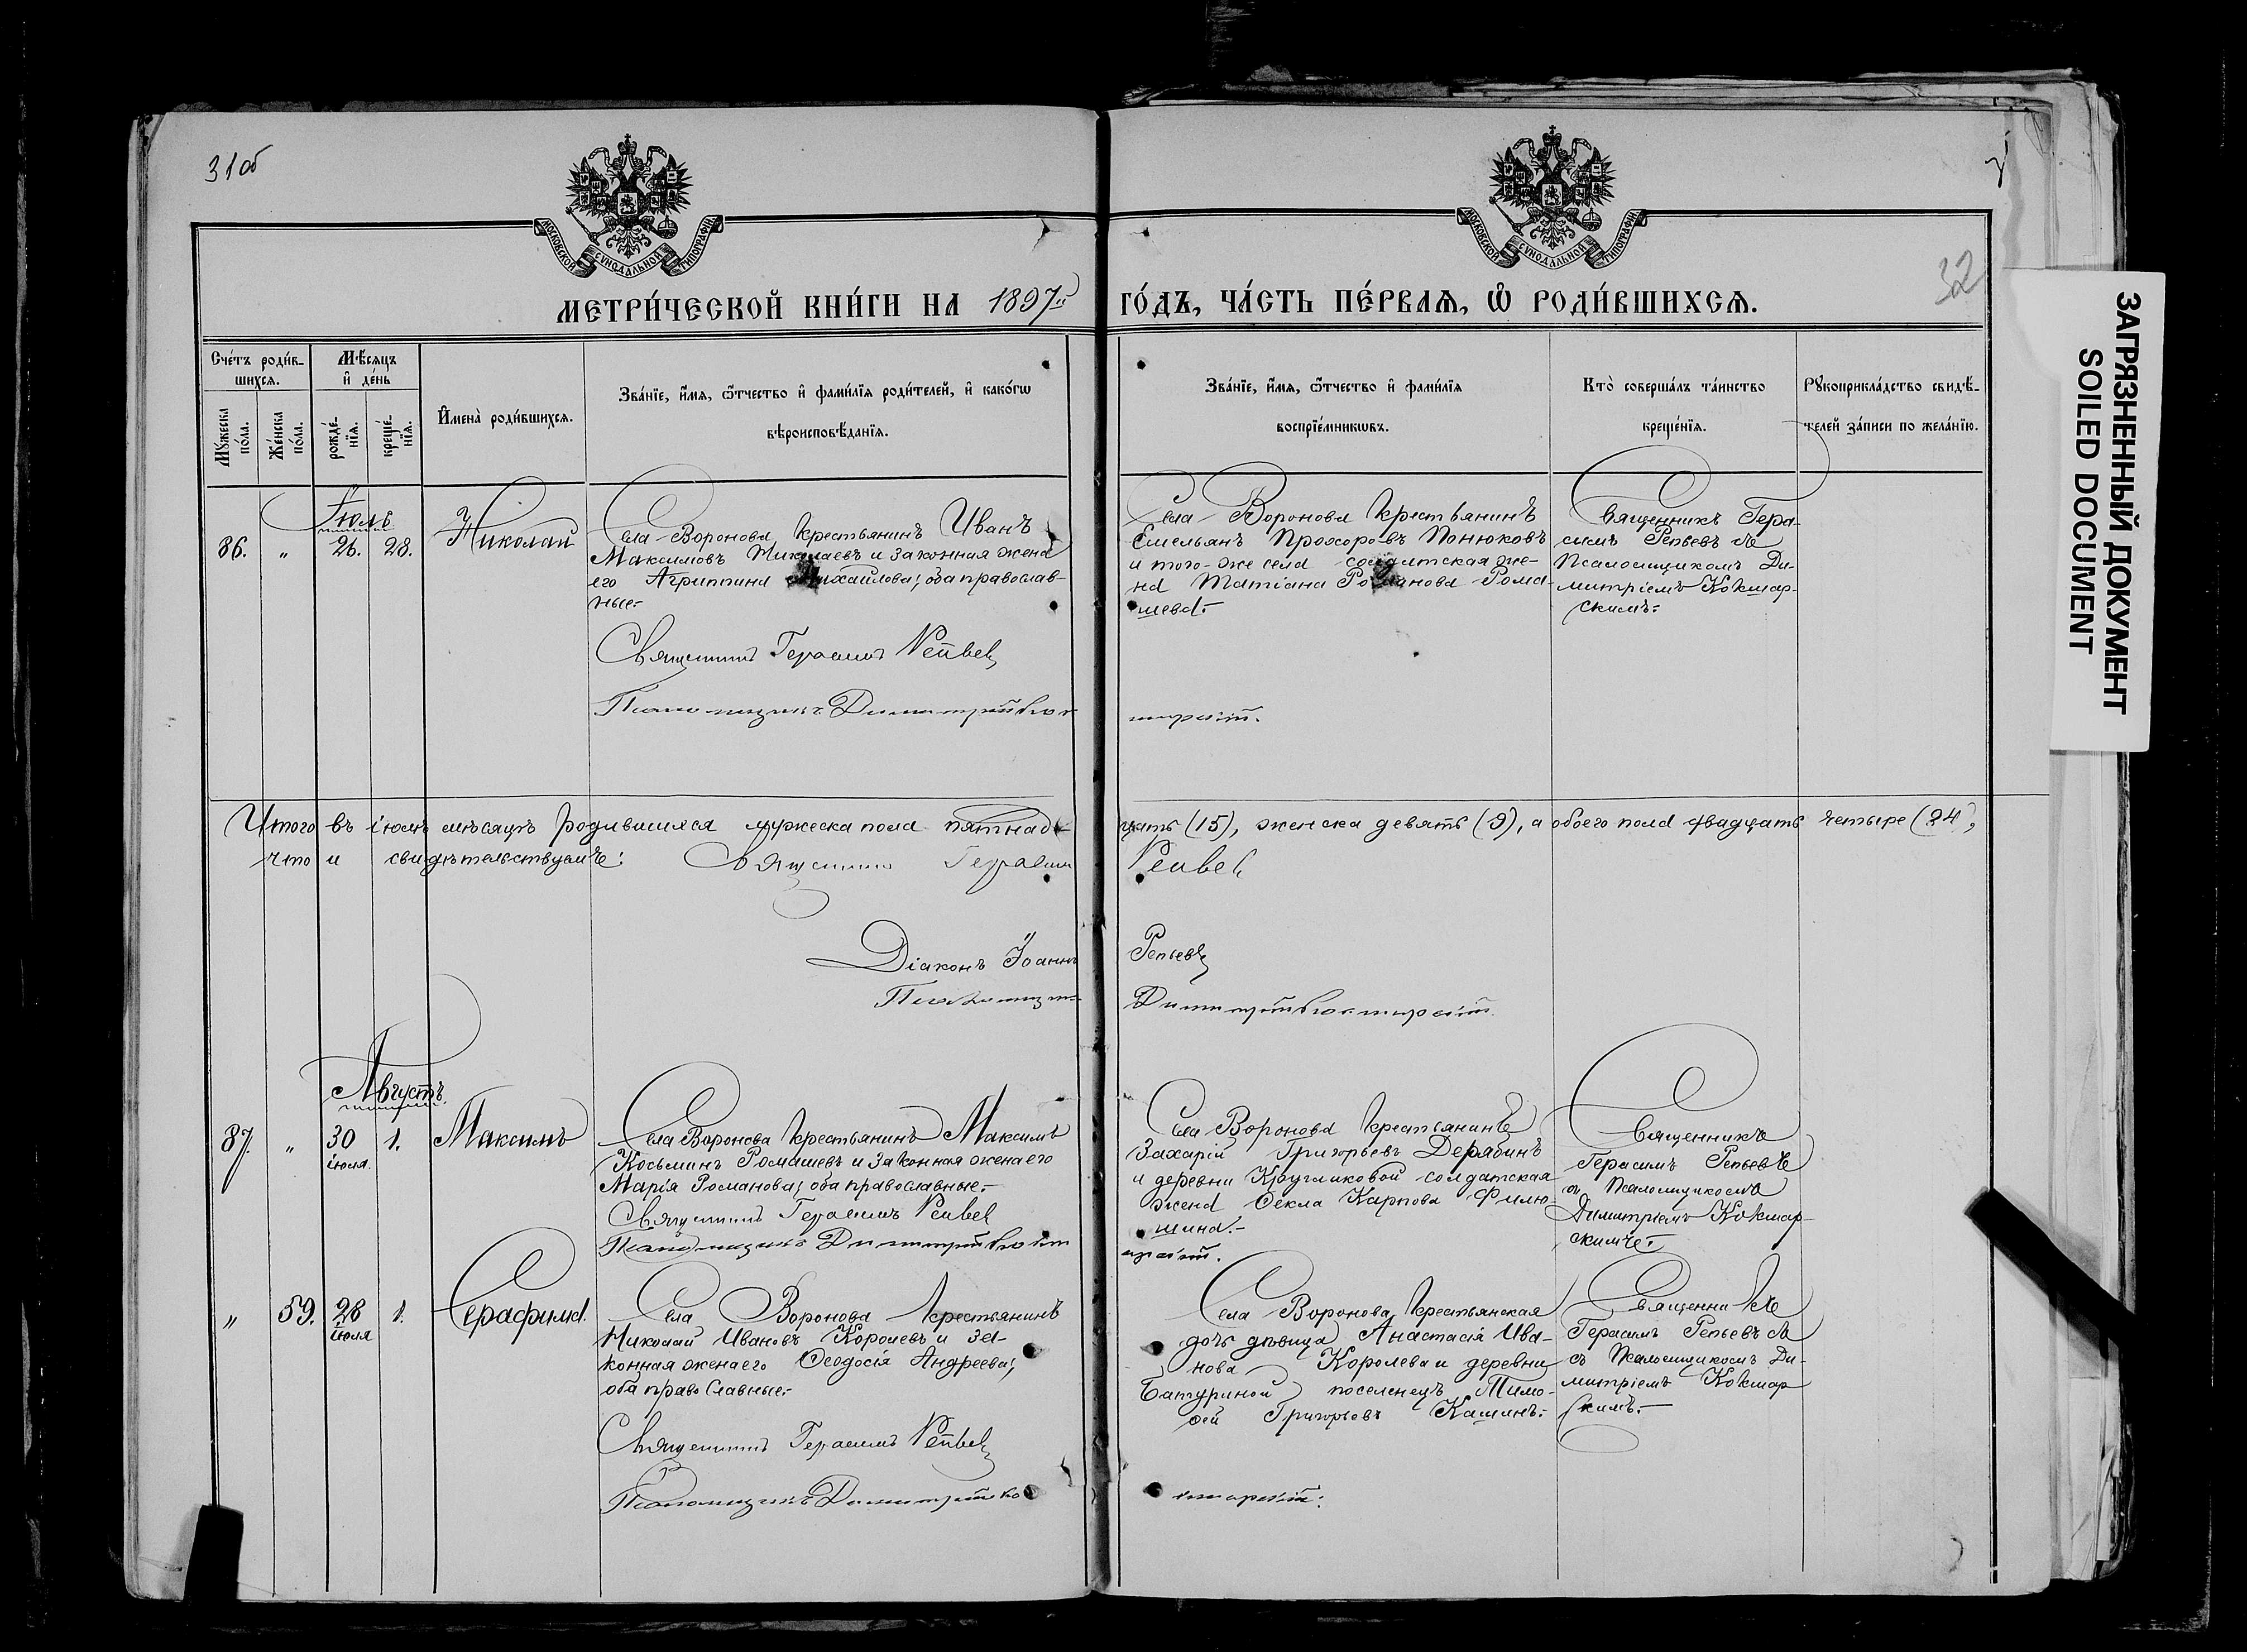 31об
32
МОСКОВСКОЙ СѴНОДАЛЬНОЙ ТИПОГРАФІИ
МОСКОВСКОЙ СѴНОДАЛЬНОЙ ТИПОГРАФІИ
МЕТРИ́ЧЕСКОЙ КНИ́ГИ НА 1897й ГО́ДЪ, ЧА́СТЬ ПЕ́РВАѦ, Ѽ РОДИ́ВШИХСѦ.
Сче́тъ роди́в-
шихсѧ.
Мѣ́сѧцъ
и҆ де́нь
Мꙋ́жеска по́ла.
Же́нска по́ла.
рожде́-
нїѧ.
креще́-
нїѧ.
И҆мена̀ роди́вшихсѧ.
Зва́нїе, и҆́мѧ, ѻ҆́тчество и҆ фами́лїѧ роди́телей, и҆ како́гѡ
вѣроисповѣ́данїѧ.
Зва́нїе, и҆́мѧ, ѻ҆́тчество и҆ фами́лїѧ
воспрїе́мникѡвъ.
Кто̀ соверша́лъ та́инство
креще́нїѧ.
Рꙋкоприкла́дство свидѣ́-
телей за́писи по жела́нїю.
Іюль
86. " 26. 28. Николай
Села Воронова крестьянинъ Иванъ
Максимовъ Николаевъ и законная жена
его Агриппина Михайлова; оба православ-
ные.-
Священникъ Герасимъ Репьевъ
Псаломщикъ Димитрій Кок
шарскій.
Села Воронова крестьянинъ
Емельянъ Прохоровъ Понюковъ
и того-же села солдатская же-
на Татіана Романова Рома-
шева.-
Священникъ Гера-
симъ Репьевъ съ
Псаломщикомъ Ди-
митріемъ Кокшар-
скимъ.-
Итого въ іюлѣ мѣсяцѣ родившихся мужеска пола пятнад-цать (15), женска девять (9), а обоего пола двадцать четыре (24),
что и свидѣтельствуемъ: Священникъ Герасимъ Репьевъ
Діаконъ Іоаннъ Репьевъ
Псаломщикъ Димитрій Кокшарскій.
Августъ.
87. " 30 іюля. 1. Максимъ
Села Воронова крестьянинъ Максимъ
Косьминъ Ромашевъ и законная жена его
Марія Романова; оба православные.-
Священникъ Герасимъ Репьевъ
Псаломщикъ Димитрій Кокш
арскій.
Села Воронова крестьянинъ
Захарій Григорьевъ Дерябинъ
и деревни Кругликовой солдатская
жена Ѳекла Карпова Филю-
шина.-
Священникъ
Герасимъ Репьевъ
съ Псаломщикомъ
Димитріемъ Кокшар-
скимъ.-
" 59. 28 іюля 1. Серафима.
Села Воронова крестьянинъ
Николай Ивановъ Королевъ и за-
конная жена его Ѳеодосія Андреева;
оба православные.-
Священникъ Герасимъ Репьевъ
Псаломщикъ Димитрій Ко
кшарскій.
Села Воронова крестьянская
дочь дѣвица Анастасія Ива-
нова Королева и деревни
Батуриной поселенецъ Тимо-
ѳей Григорьевъ Кашинъ.-
Священникъ
Герасимъ Репьевъ съ
съ Псаломщикомъ Ди-
митріемъ Кокшар
скимъ.-
ЗАГРЯЗНЕННЫЙ ДОКУМЕНТ
SOILED DOCUMENT